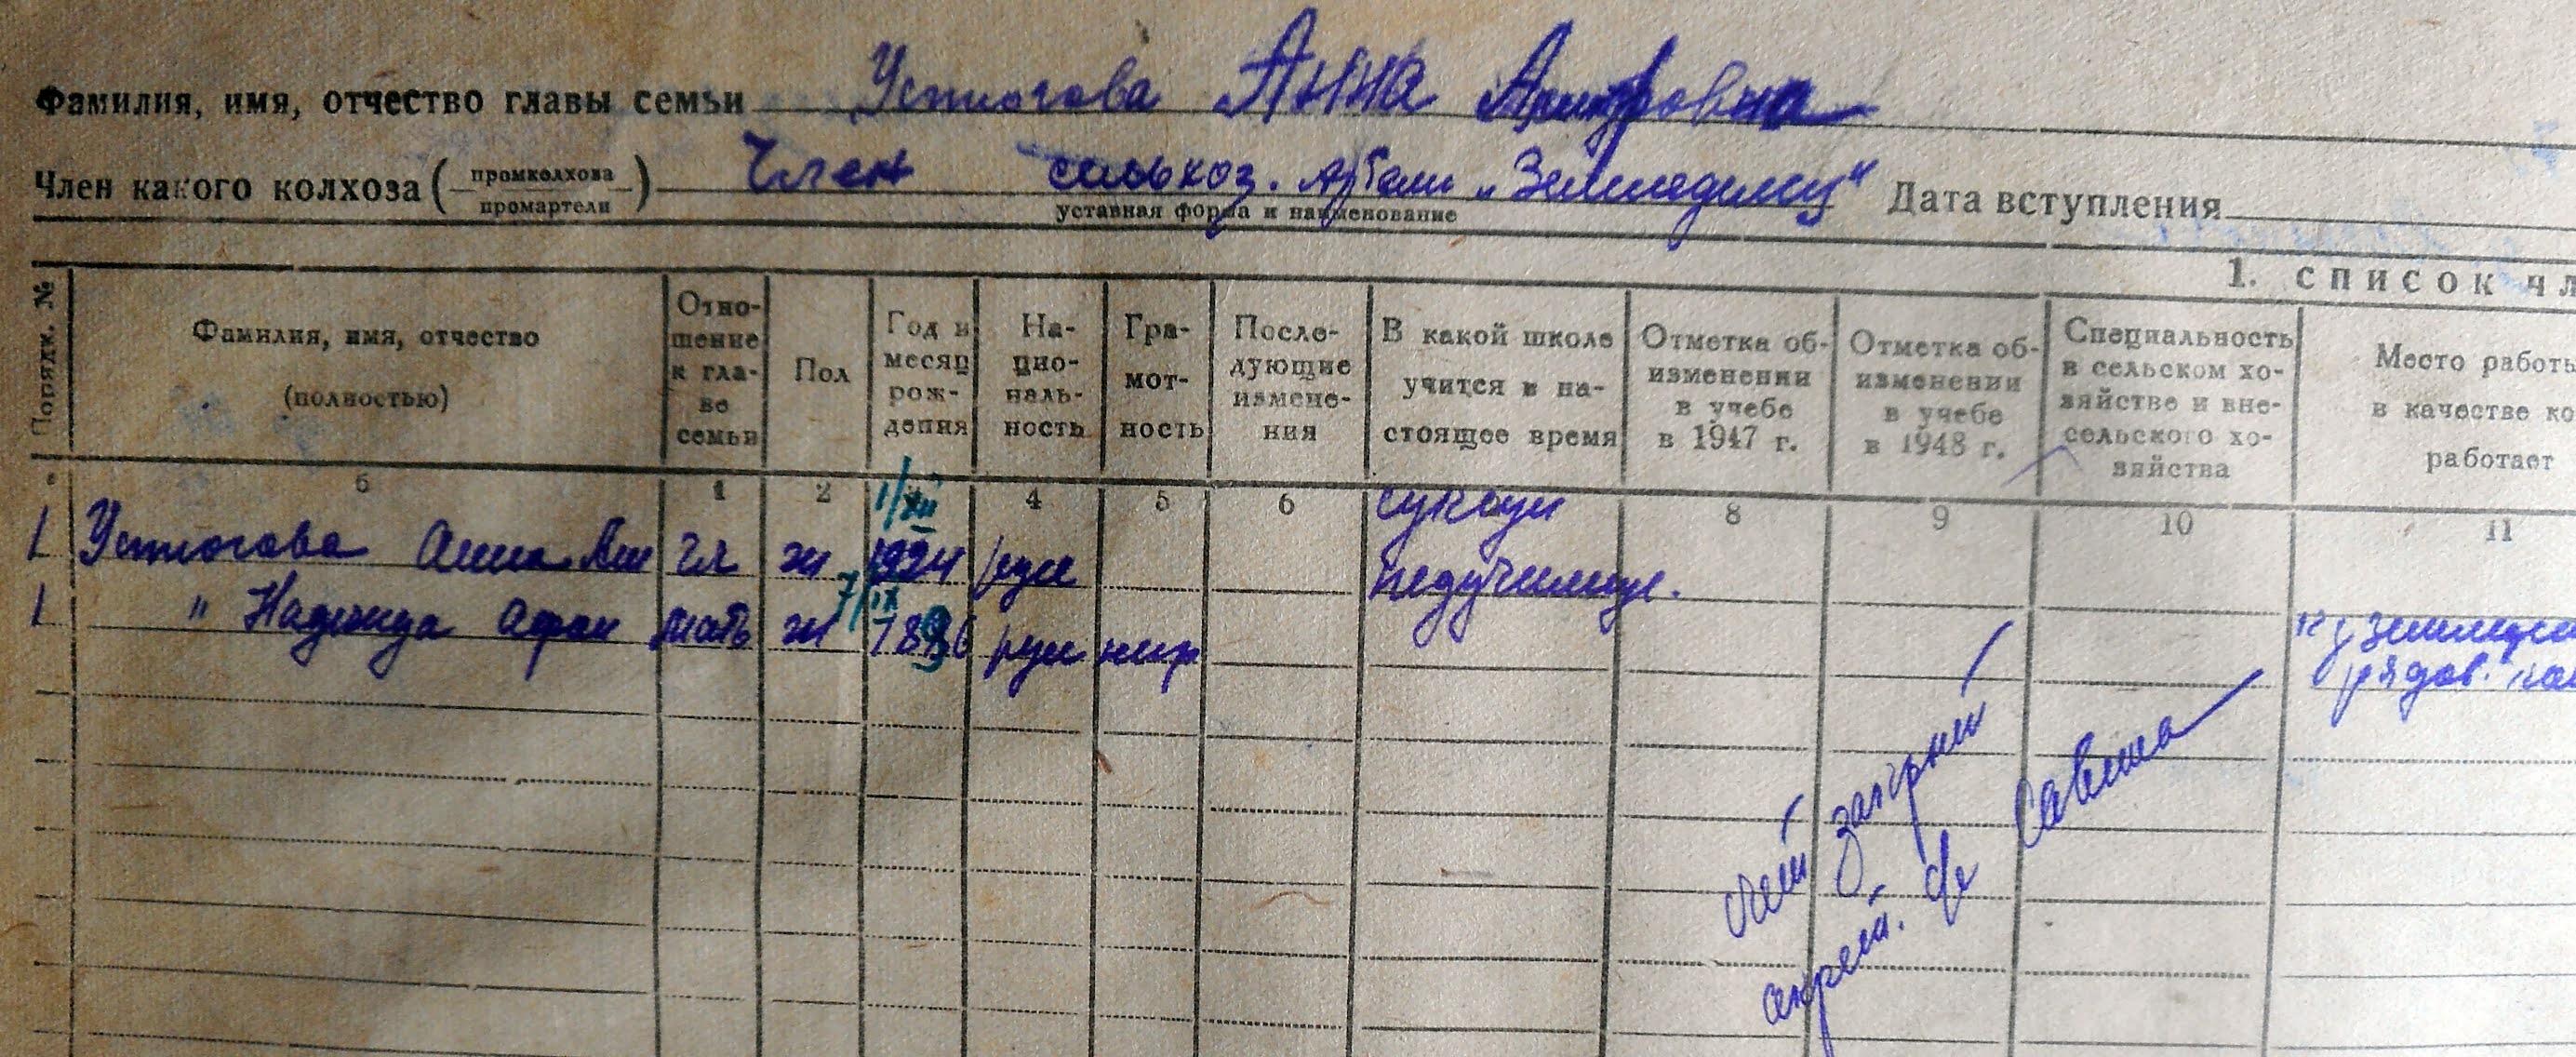 Фамилия, имя, отчество главы семьи Устюгова Анна
Член какого колхоза (промколхоза промартели) Член сельхоз. артели „Земледелец“ Дата вступления
уставная форма и наименование
1. СПИСОК ЧЛ
Порядк. №
Фамилия, имя, отчество (полностью)
Отношение к главе семьи
Пол
Год и месяц рождения
Национальность
Грамотность
Последующие изменения
В какой школе учится в настоящее время
Отметка об изменении в учебе в 1947 г.
Отметка об изменении в учебе в 1948 г.
Специальность в сельском хозяйстве и вне сельского хозяйства
Место работы в качестве ко работает
б 1 2 4 5 6 8 9 10 11
1/XII
1 Устюгова Анна гл ж 1924 рус педучилище.
7/IX
1 " Надежда Афан мать ж рус негр к/з Земледел
рядов.